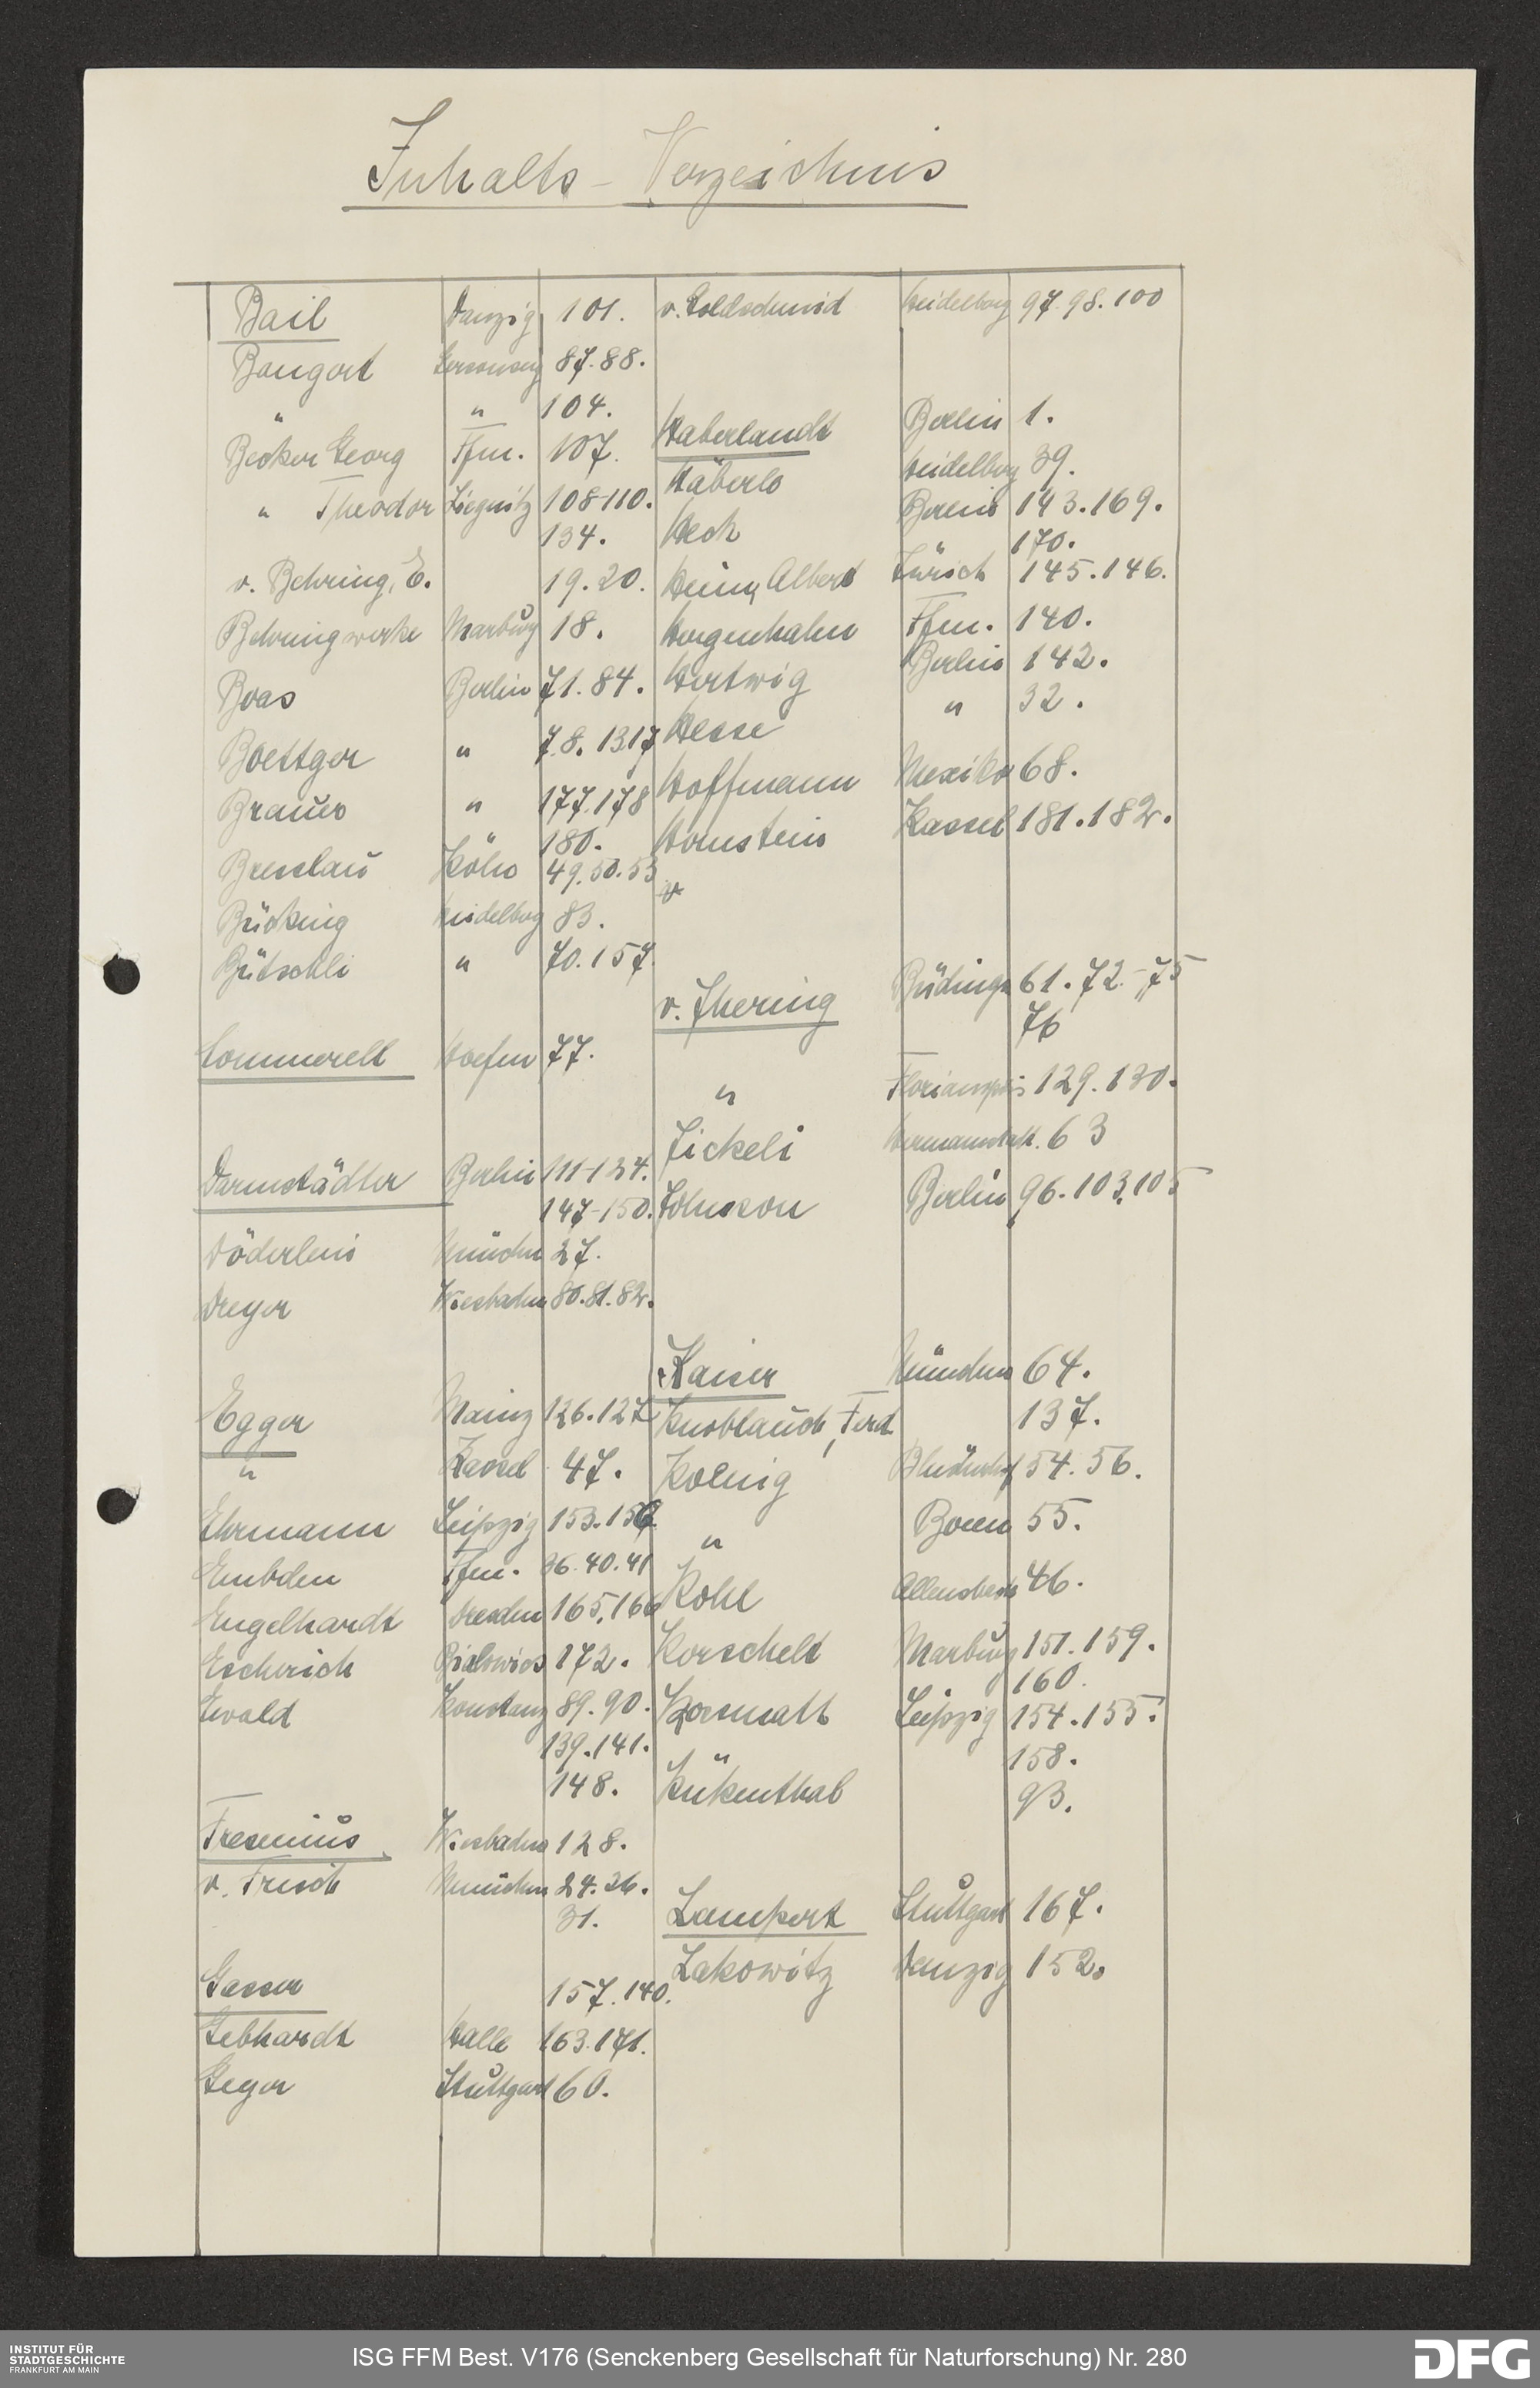 Inhalts-Verzeichnis
Bail Danzig 101.
Bangert 87.88.
" " 104.
Becker Georg Ffm. 107.
" Theodor Liegnitz 108-110.
134.
v. Behring, E. 19.20.
Behringwerke Marburg 18.
Boas Berlin 71.84.
Boettger " 7.8.1317
Brauer " 177.178
180.
Bresslau Köln 49.50.53
Bücking Heidelberg 83.
Bütschli " 70.157.
Commerell Hoefen 77.
Darmstädter Berlin 111-124.
147-150.
Döderlein München 27.
Dreyer Wiesbaden 80.81.82.
Egger Mainz 126.127
" Kassel 47.
Ehrmann Leipzig 153.
Embden Ffm. 36.40.41
Engelhardt Dresden 165.166
Escherich 172.
Ewald Konstanz 89.90.
139.141.
148.
Fresenius Wiesbaden 128.
v. Frisch München 24.26.
31.
Gasser 157.140.
Gebhardt Halle 163.171.
Geyer Stuttgart 60.
v. Goldschmid Heidelberg 97.98.100
Haberlandt Berlin 1.
Häberle Heidelberg 39.
Heck Berlin 143.169.
170.
Heim, Albert Zürich 145.146.
Hergenhahn Ffm. 140.
Hertwig Berlin 142.
Hesse " 32.
Hoffmann Mexiko 68.
Hornstein Kassel 181.182.
v. Jhering Büdingen 61.72.-75
76
" 129.130.
Jickeli Hermannstadt. 63
Johnson Berlin 96.103.105
Kaiser München 64.
Knoblauch, Ferd. 137.
Koenig 54.56.
" Bonn 55.
Kohl Allensbach 46.
Korschelt Marburg 151.159.
160.
Kossmatt Leipzig 154.155.
" 158.
Kükenthal 93.
Lampert Stuttgart 167.
Lakowitz Danzig 152.
INSTITUT FÜR
STADTGESCHICHTE
FRANKFURT AM MAIN
ISG FFM Best. V176 (Senckenberg Gesellschaft für Naturforschung) Nr. 280
DFG